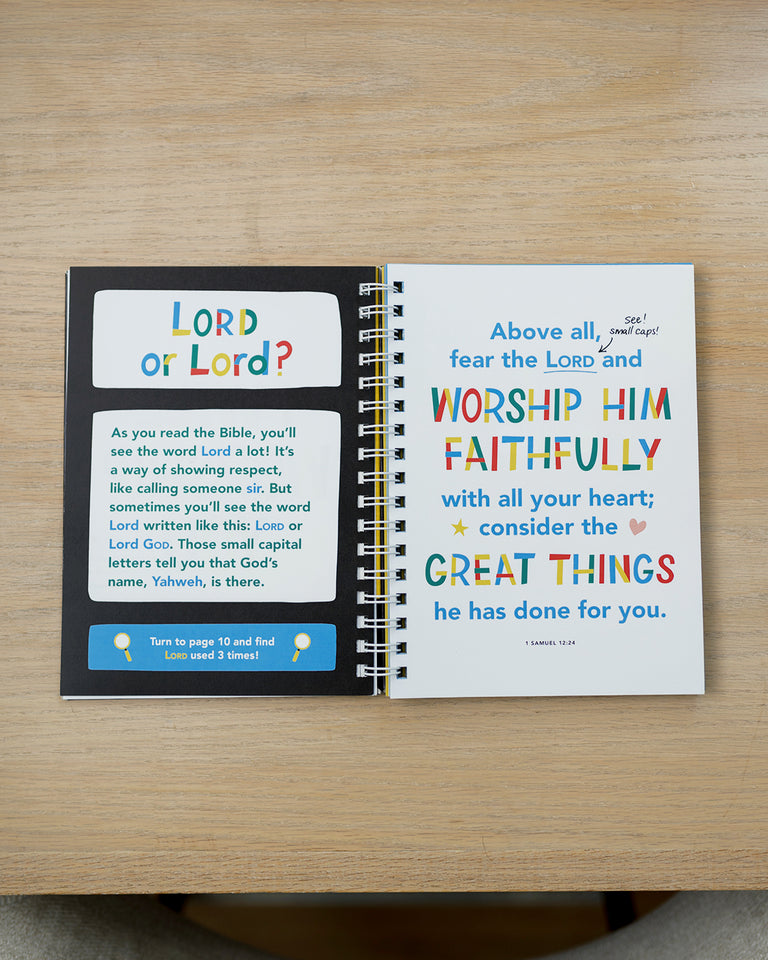 LORD
or Lord?
As you read the Bible, you'll
see the word Lord a lot! It's
a way of showing respect,
like calling someone sir. But
sometimes you'll see the word
Lord written like this: LORD or
Lord GOD. Those small capital
letters tell you that God's
name, Yahweh, is there.
Turn to page 10 and find
LORD used 3 times!
See!
small caps!
Above all,
fear the LORD and
WORSHIP HIM
FAITHFULLY
with all your heart;
consider the
GREAT THINGS
he has done for you.
1 SAMUEL 12:24